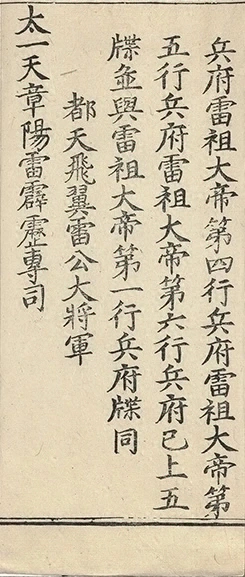 兵府雷祖大帝第四行兵府雷祖大帝第
五行兵府雷祖大帝第六行兵府已上五
牒並與雷祖大帝第一行兵府牒同
都天飛翼雷公大將軍
太一天章陽雷霹靂專司